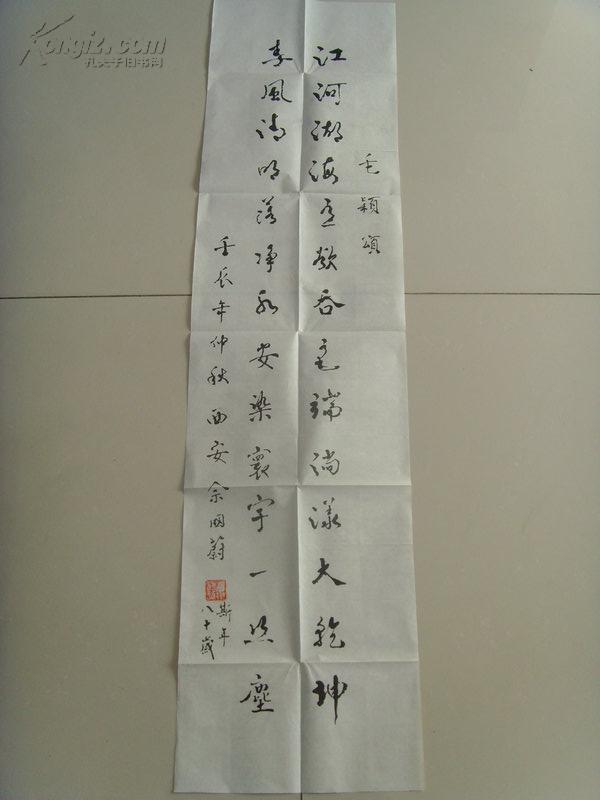 Kongfz.com
孔夫子旧书网
毛穎頌
江河湖海欲吞毛端淌漾大乾坤
風清明落净安染寰宇一点塵
壬辰年仲秋西安余國蔚
斯年
八十歲